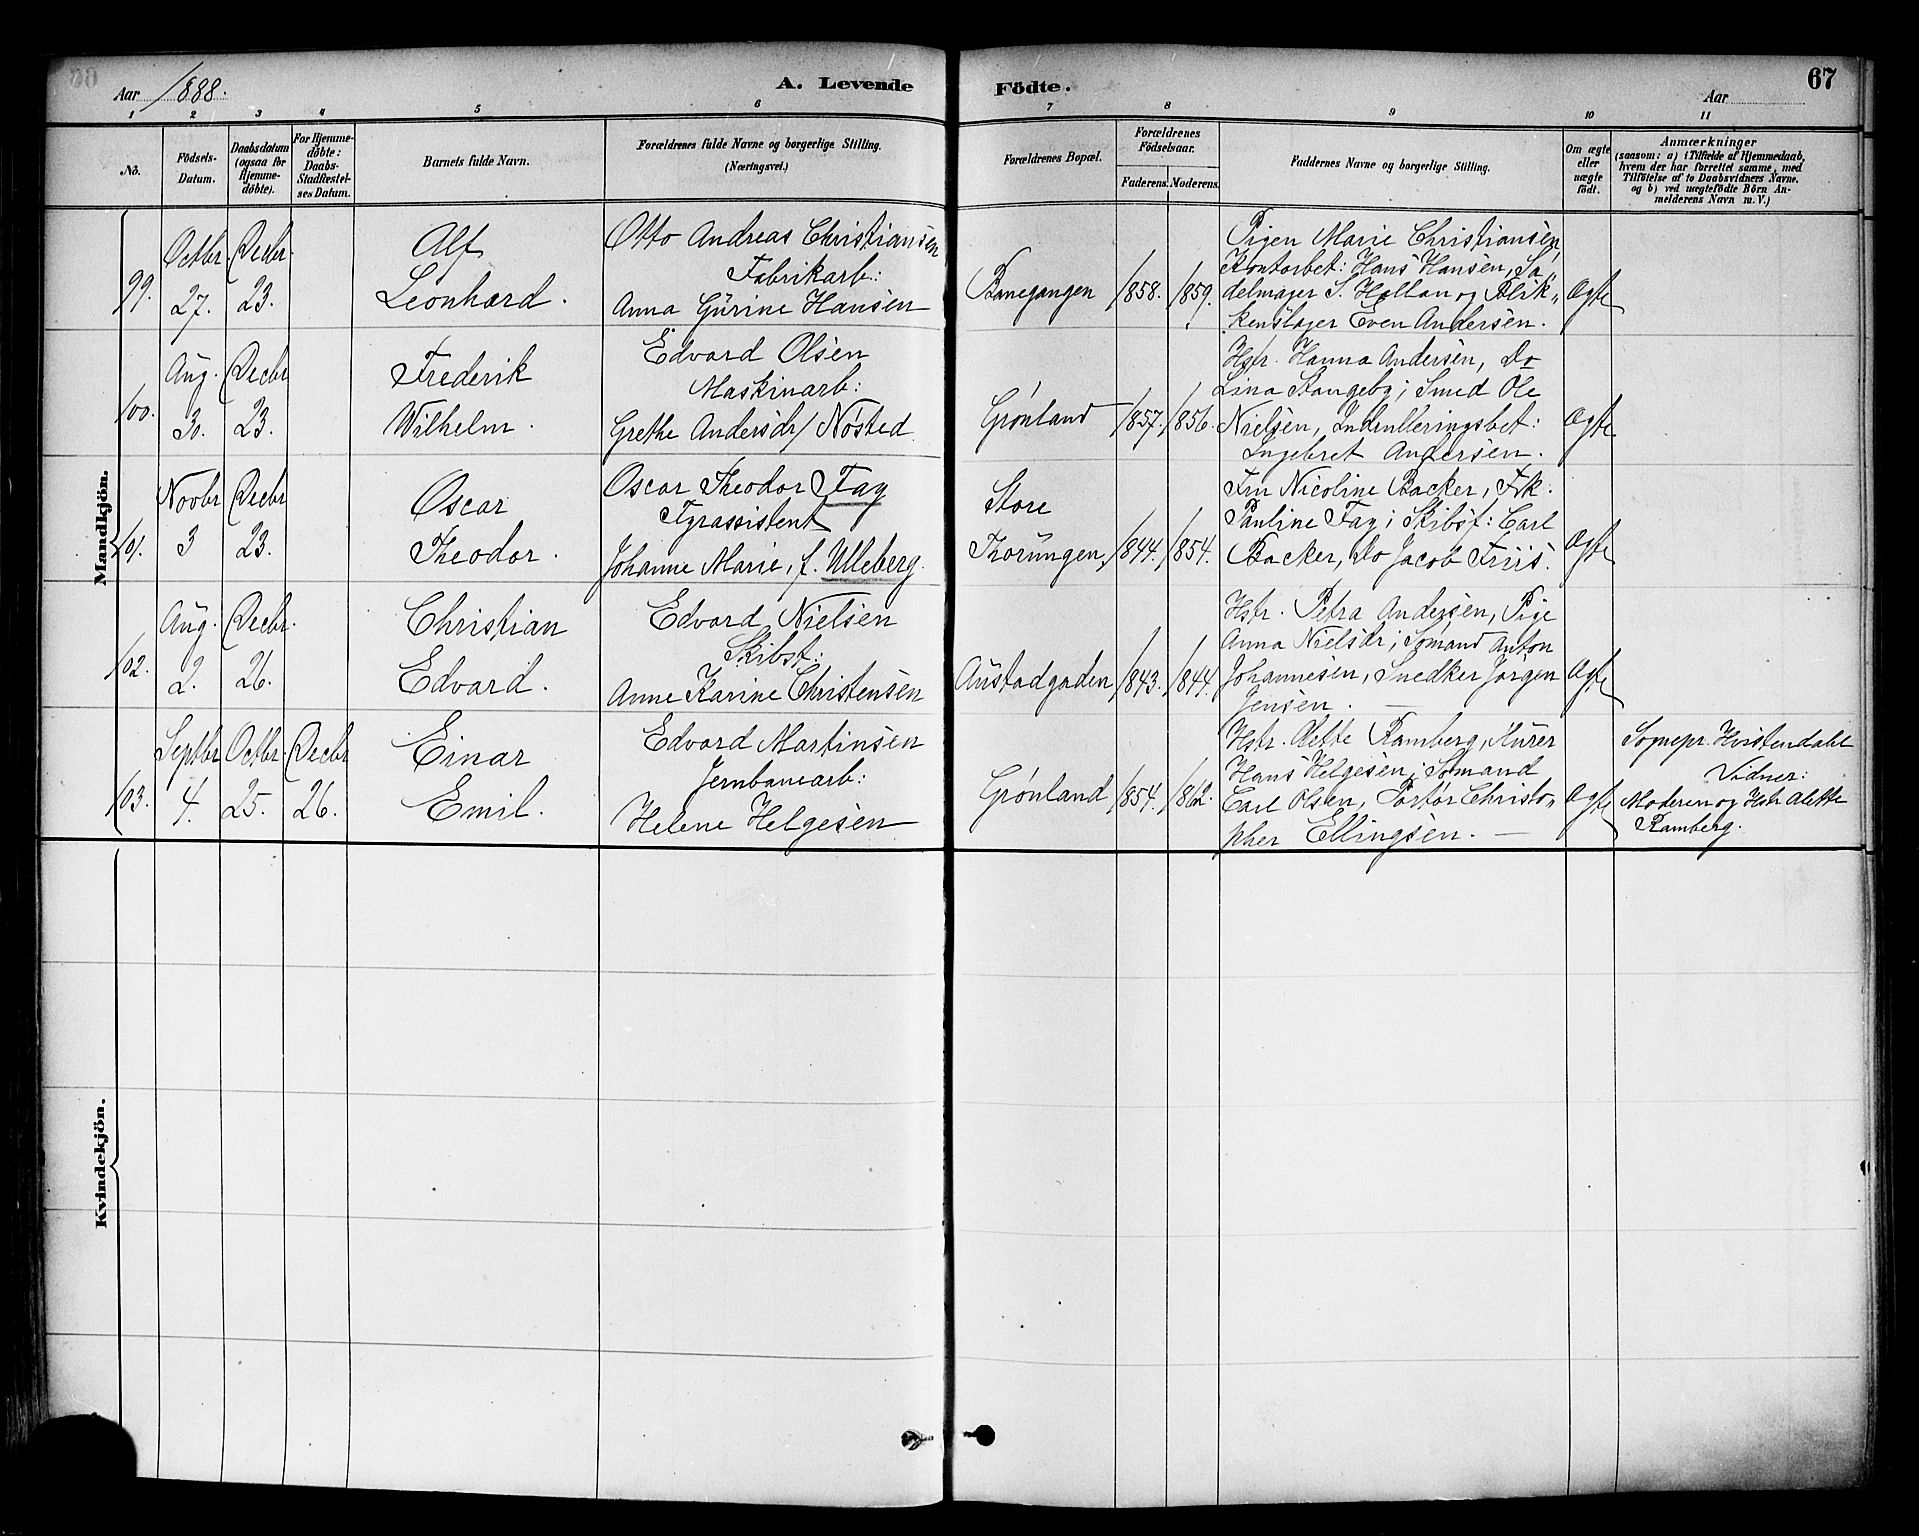 Aar 1888.
A. Levende
Födte.
67
Aar
1 2 3 4 5 6 7 8 9 10 11
No.
Födsels-
Datum.
Daabsdatum
(ogsaa for
Hjemme-
døbte).
For Hjemme-
døbte:
Daabs-
Stadfæstel-
ses Datum.
Barnets fulde Navn.
Forældrenes fulde Navne og borgerlige Stilling.
(Næringsvei.)
Forældrenes Bopæl.
Forældrenes
Fødselsaar.
Faderens. Moderens.
Faddernes Navne og borgerlige Stilling.
Om ægte
eller
uægte
født.
Anmærkninger
(saasom: a) i Tilfælde af Hjemmedaab,
hvem der har forrettet samme, med
Tilføielse af to Daabsvidners Navne,
og b) ved uægtefødte Börn An-
melderens Navn m. V.)
Mandkjön.
99.
Octbr.
27.
Decbr.
23.
Alf
Leonhard.
Otto Andreas Christiansen
Fabrikarb:
Anna Gurine Hansen
Banegangen
1858.
1859.
Pigen Marie Christiansen,
Kontorbet: Hans Hansen, Sa„
delmager S. Hollan og Blik„
kenslager Even Andersen.
Ægte
100.
Aug.
30.
Decbr
23.
Frederik
Wilhelm.
Edvard Olsen
Maskinarb:
Grethe Andersdr/ Nøsted
Grønland
1857.
1856.
Hstr. Hanna Andersen, Do
Lina Stangeby; Smed Ole
Nielsen, Indrulleringsbet:
Ingebret Andersen.
Ægte
101.
Novbr
3
Decbr
23.
Oscar
Theodor.
Oscar Theodor Fag
Fyrassistent
Johanne Marie, f. Ulleberg.
Store
Thorungen,
1844.
1854.
Fru Nicoline Backer, Frk.
Pauline Fag; Skibsf: Carl
Backer, Do Jacob Friis.
Ægte
102.
Aug.
2.
Decbr.
26.
Christian
Edvard.
Edvard Nielsen
Skibst:
Anne Karine Christensen
Austadgaden
1843.
1844.
Hstr. Petra Andersen, Pige
Anna Nielsdr; Sømand Anton
Johannesen, Snedker Jørgen
Jensen. —
Ægte
103.
Septbr.
4.
Octbr.
25.
Decbr
26.
Einar
Emil.
Edvard Martinsen
Jernbanearb:
Helene Helgesen
Grønland
1854.
1862.
Hstr. Alette Ramberg, Kurer
Hans Helgesen; Sømand
Carl Olsen, Portør Christo„
pher Ellingsen. —
Ægte
Sognepr. Hvistendahl
Vidner:
Moderen og Hstr. Alette
Ramberg.
Kvindekjön.